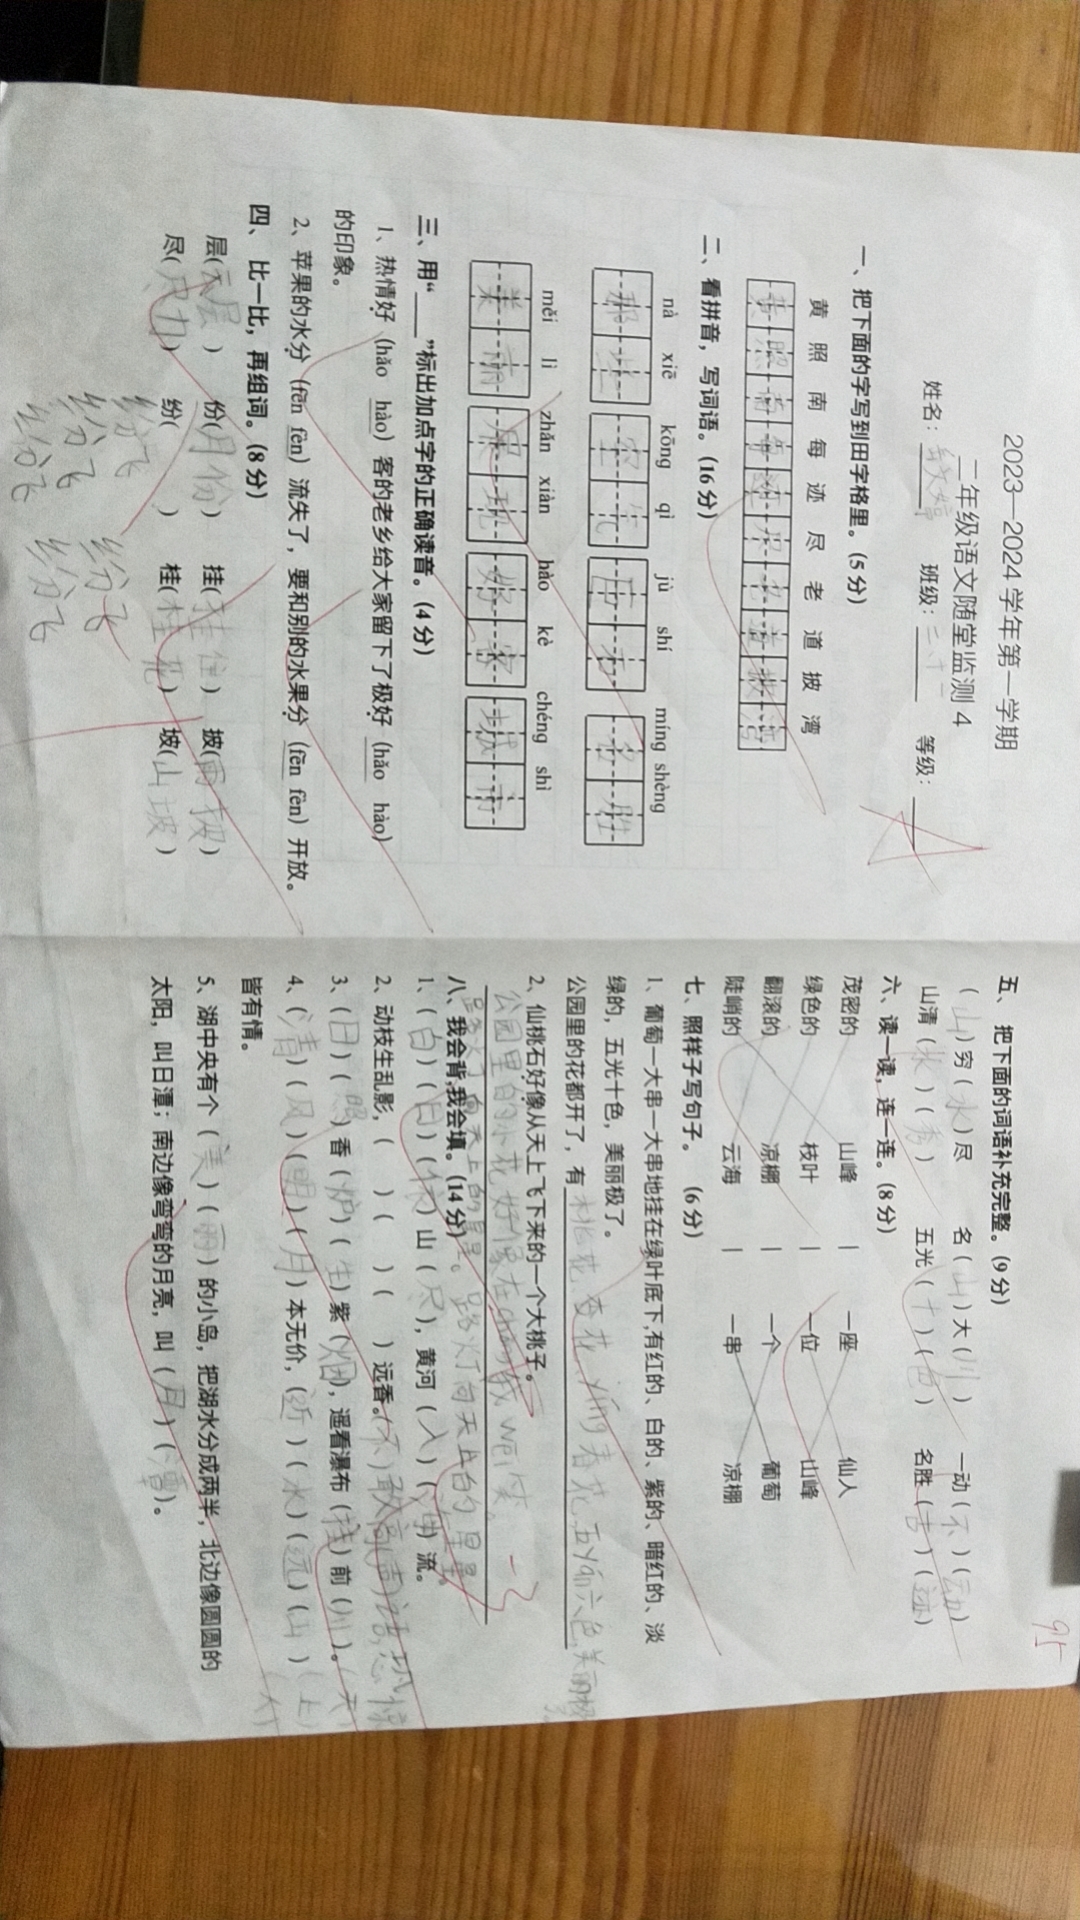 2023—2024学年第一学期
二年级语文随堂监测 4
姓名： 班级： 等级：
一、把下面的字写到田字格里。(5分)
黄 照 南 每 迹 尽 老 道 披 湾
黄 照 南 每 迹 尽 老 道 披 湾
二、看拼音，写词语。(16分)
nà xiē kōng qì jù shí míng shèng
那些 空气 巨石 名胜
měi lì zhǎn xiàn hào kè chéng shì
美丽 展现 好客 城市
三、用“____”标出加点字的正确读音。(4分)
1、热情好（hǎo hào）客的老乡给大家留下了极好（hǎo hào）
的印象。
2、苹果的水分（fēn fèn）流失了，要和别的水果分（fēn fèn）开放。
四、比一比，再组词。(8分)
层(云层) 份(月份) 挂(挂住) 披(雨披)
尽(尽力) 纷( ) 桂(桂花) 坡(山坡)
纷飞
纷飞 纷飞
纷飞 纷飞
95
五、把下面的词语补充完整。(9分)
（山）穷（水）尽 名（山）大（川） 一动（不）（动）
山清（水）（秀） 五光（十）（色） 名胜（古）（迹）
六、读一读，连一连。(8分)
茂密的 山峰 一座 仙人
绿色的 枝叶 一位 山峰
翻滚的 凉棚 一个 葡萄
陡峭的 云海 一串 凉棚
七、照样子写句子。 (6分)
1、葡萄一大串一大串地挂在绿叶底下,有红的、白的、紫的、暗红的、淡
绿的，五光十色，美丽极了。
公园里的花都开了，有桃花、杏花、yíng春花,五yán六色,美丽极
了。
2、仙桃石好像从天上飞下来的一个大桃子。
公园里的小花好像在
八、我会背,我会填。(14分)
1、（白）（日）（依）山（尽），黄河（入）（海）流。
2、动枝生乱影，（ ）（ ）（ ）远香。(不)敢高(声)语,恐惊
3、（日）（照）香（炉）（生）紫（烟），遥看瀑布（挂）前（川）。(天)
4、（清）（风）（明）（月）本无价，（近）（水）（远）（山） (上)
皆有情。 (人)
5、湖中央有个（美）（丽）的小岛，把湖水分成两半，北边像圆圆的
太阳，叫日潭；南边像弯弯的月亮，叫（月）（潭）。